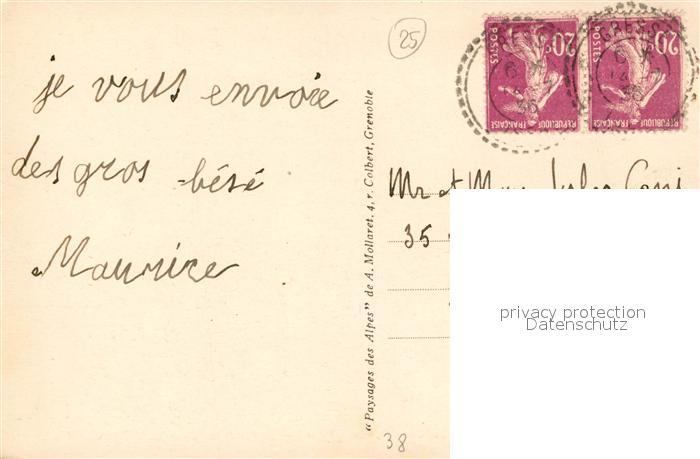 je vous envoie
des gros bésé
Maurice
"Paysages des Alpes" de A. Mollaret, 4, r. Colbert, Grenoble
25
38
20c
POSTES
REPUBLIQUE FRANÇAISE
20c
POSTES
REPUBLIQUE FRANÇAISE
Mr et Mme Jules
35
privacy protection
Datenschutz